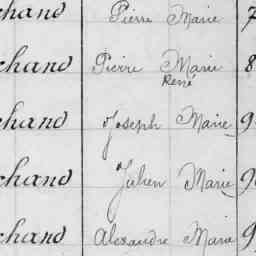 chand Pierre Marie 7
chand Pierre Marie 8
René
chand Joseph Marie 9
chand Julien Marie 9
chand Alexandre Marie 9